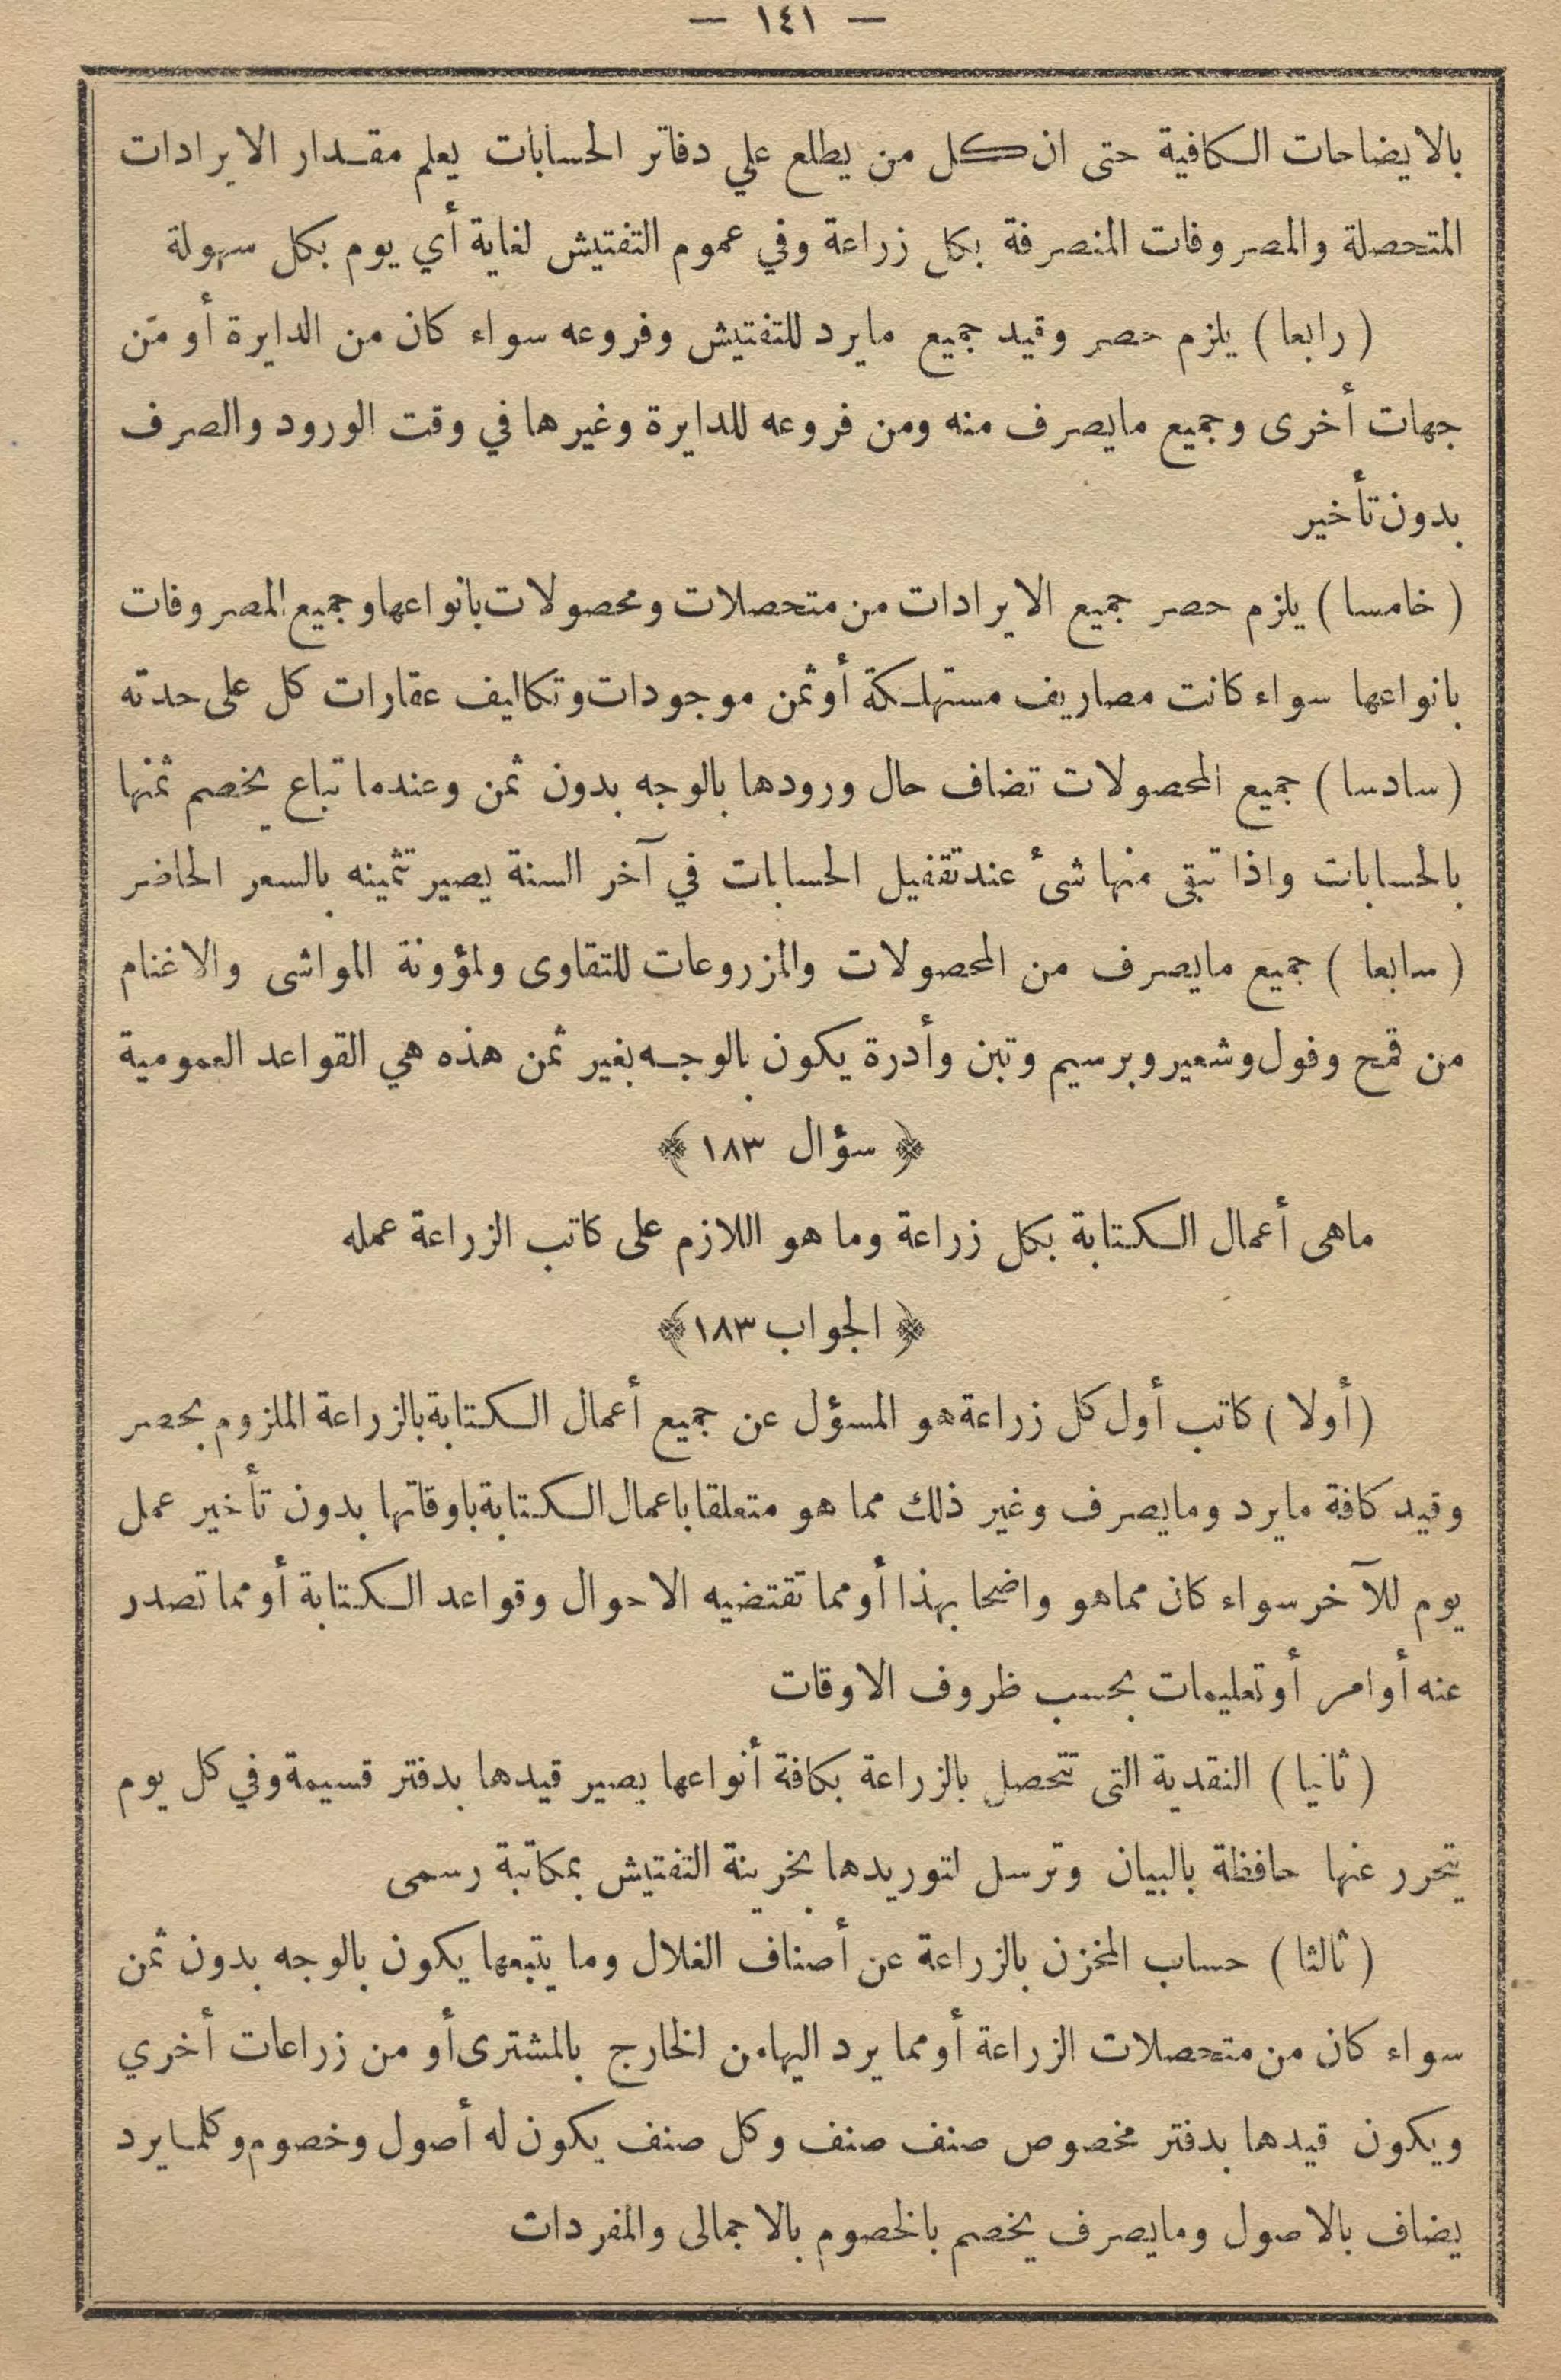 — ١٤١ —
بالايضاحات الكافية حتى ان كل من يطلع علي دفاتر الحسابات يعلم مقدار الايرادات
المتحصلة والمصروفات المنصرفة بكل زراعة وفي عموم التفتيش لغاية أي يوم بكل سهولة
(رابعا) يلزم حصر وقيد جميع مايرد للتفتيش وفروعه سواء كان من الدايرة أو من
جهات أخرى وجميع مايصرف منه ومن فروعه للدايرة وغيرها في وقت الورود والصرف
بدون تأخير
(خامسا) يلزم حصر جميع الايرادات من متحصلات ومحصولات بانواعها وجميع المصروفات
بانواعها سواء كانت مصاريف مستهلكة أو ثمن موجودات وتكاليف عقارات كل على حدته
(سادسا) جميع المحصولات تضاف حال ورودها بالوجه بدون ثمن وعندما تباع يخصم ثمنها
بالحسابات واذا تبقى منها شئ عند تقفيل الحسابات في آخر السنة يصير تثمينه بالسعر الحاضر
(سابعا) جميع مايصرف من المحصولات والمزروعات للتقاوى ولمؤونة المواشى والاغنام
من قمح وفول وشعير وبرسيم وتبن وأدرة يكون بالوجه بغير ثمن هذه هي القواعد العمومية
﴿ سؤال ١٨٣ ﴾
ماهى أعمال الكتابة بكل زراعة وما هو اللازم على كاتب الزراعة عمله
﴿ الجواب ١٨٣ ﴾
(أولا) كاتب أول كل زراعة هو المسؤل عن جميع أعمال الكتابة بالزراعة الملزوم بحصر
وقيد كافة مايرد ومايصرف وغير ذلك مما هو متعلقا باعمال الكتابة باوقاتها بدون تأخير عمل
يوم للآخر سواء كان مماهو واضحا بهذا أو مما تقتضيه الاحوال وقواعد الكتابة أو مما تصدر
عنه أوامر أو تعليمات بحسب ظروف الاوقات
(ثانيا) النقدية التى تتحصل بالزراعة بكافة أنواعها يصير قيدها بدفتر قسيمة وفي كل يوم
يتحرر عنها حافظة بالبيان وترسل لتوريدها بخزينة التفتيش بمكاتبة رسمى
(ثالثا) حساب المخزن بالزراعة عن أصناف الغلال وما يتبعها يكون بالوجه بدون ثمن
سواء كان من متحصلات الزراعة أو مما يرد اليها من الخارج بالمشترى أو من زراعات أخري
ويكون قيدها بدفتر مخصوص صنف صنف وكل صنف يكون له أصول وخصوم وكلمايرد
يضاف بالاصول ومايصرف يخصم بالخصوم بالاجمالى والمفردات